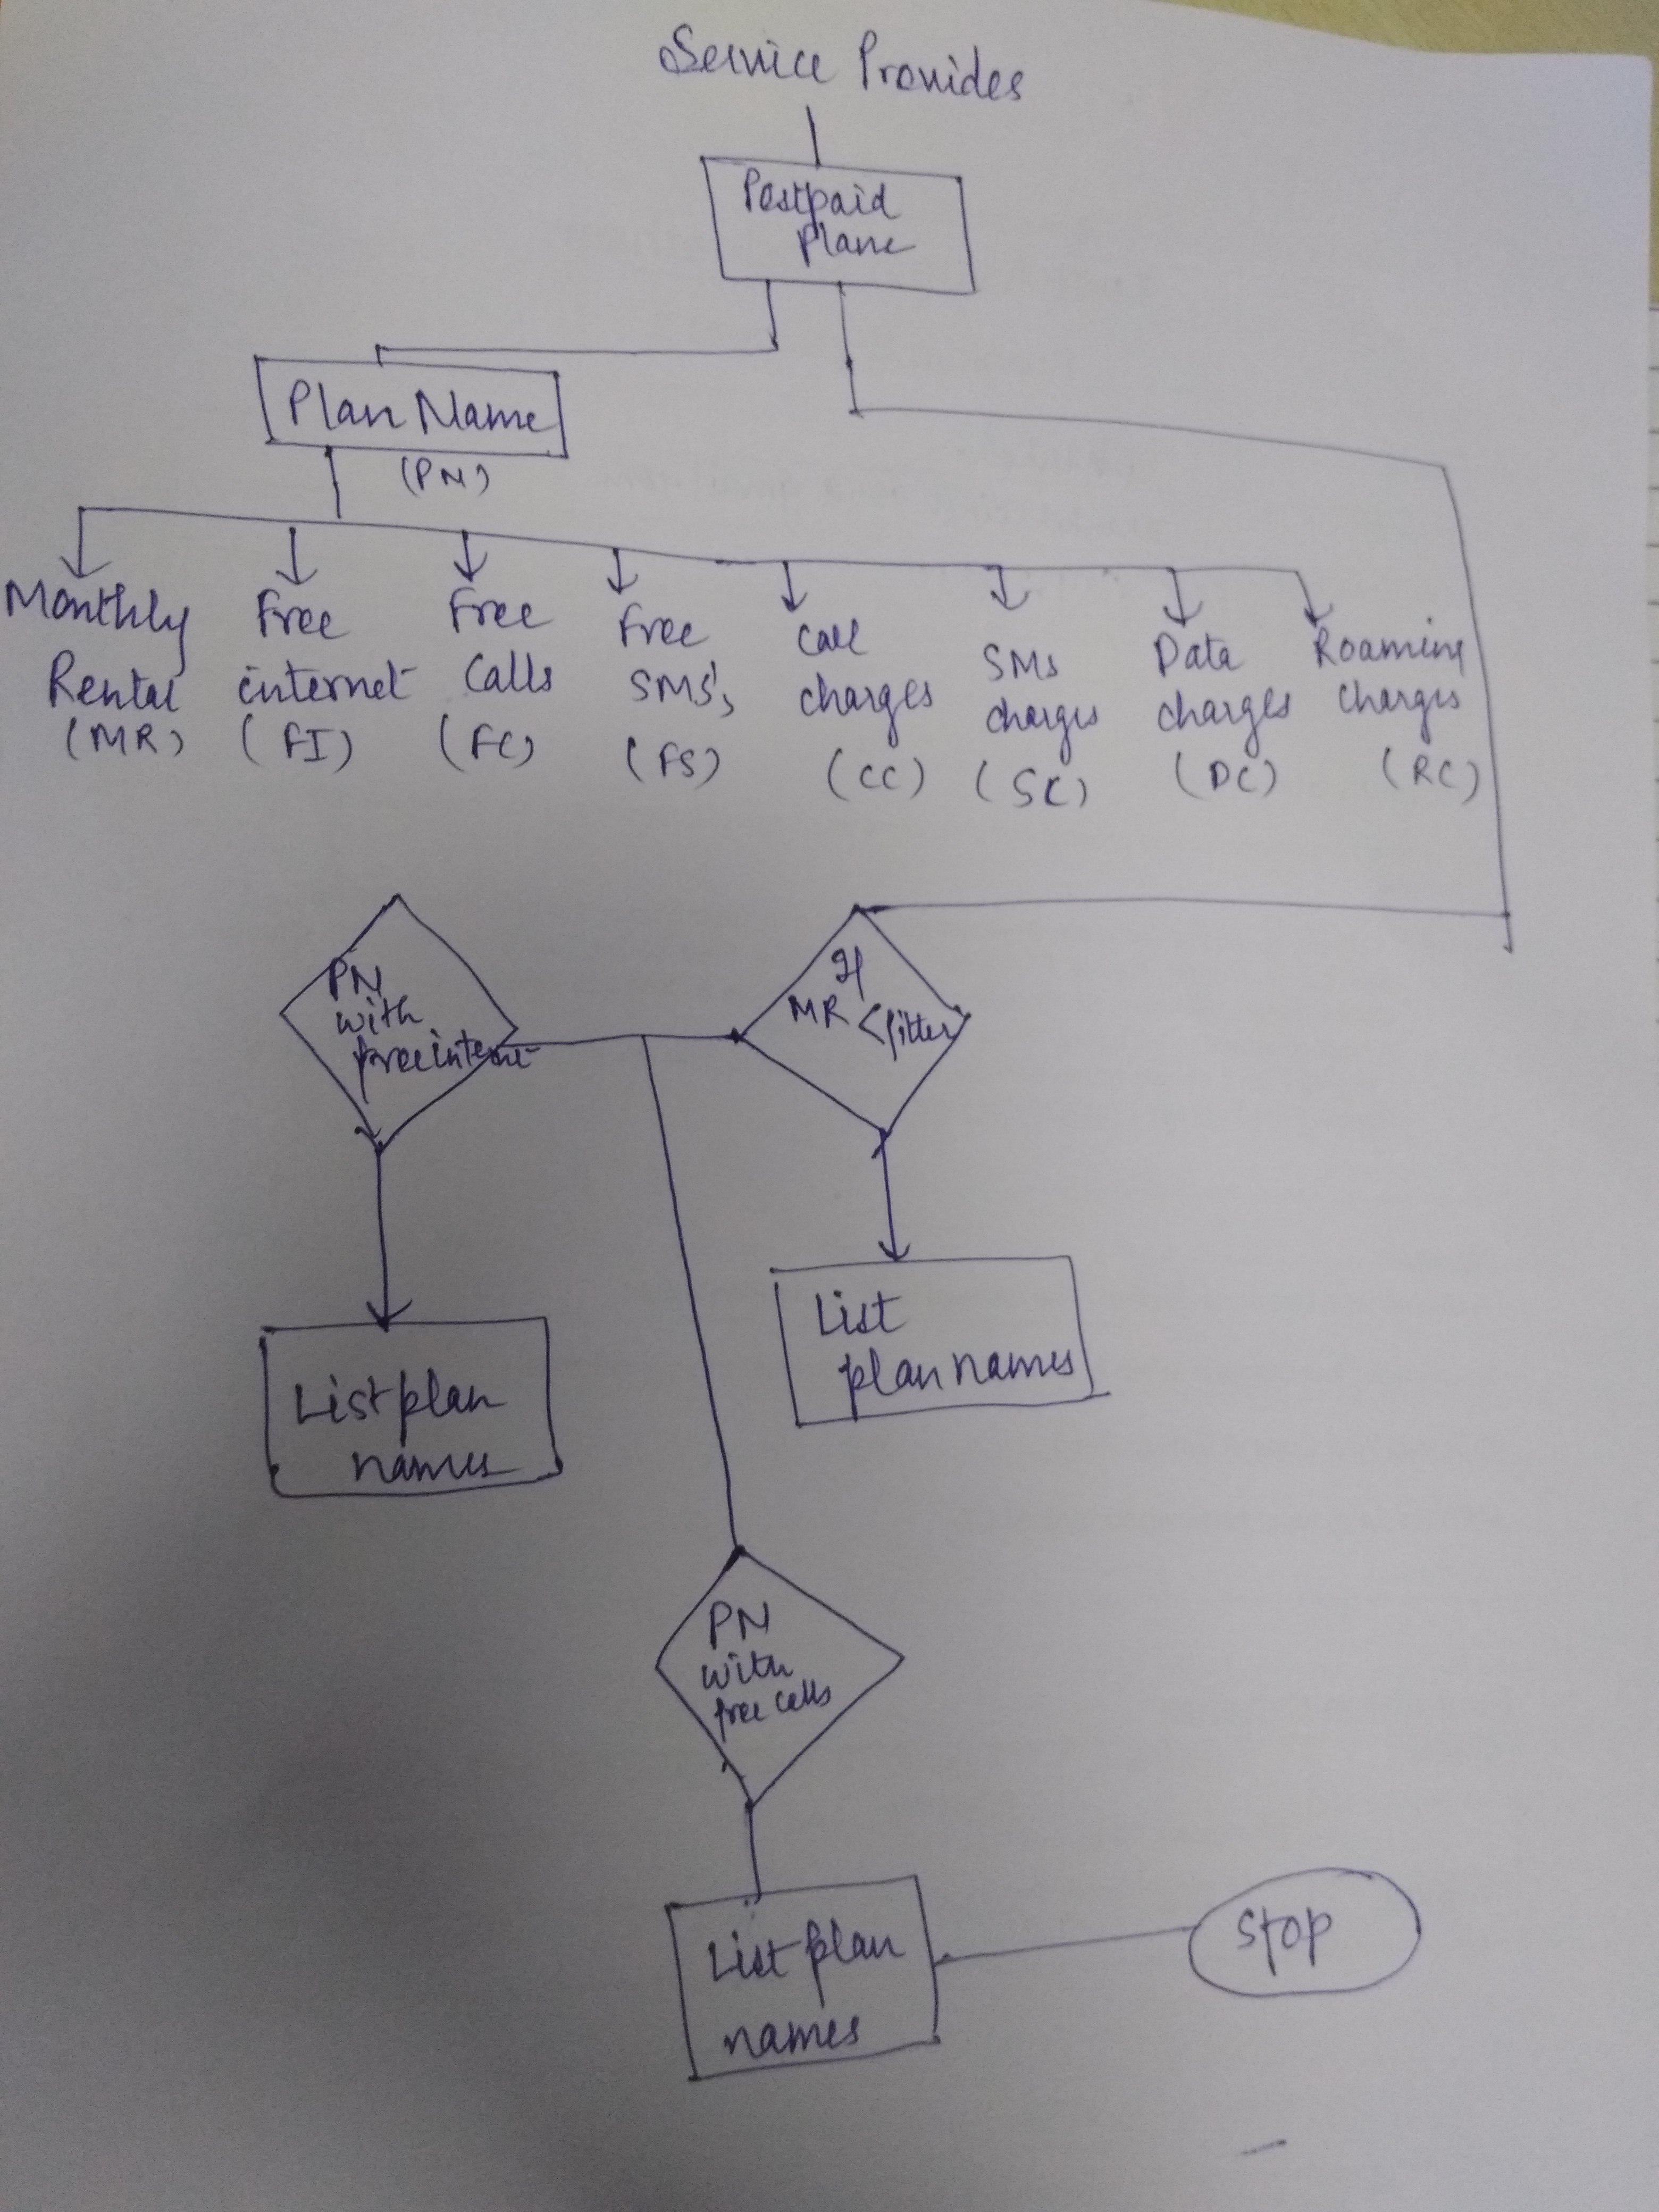 Service Provides
Postpaid
Plane
Plan Name
(PN)
Monthly
Rental
(MR)
Free
internet
(FI)
Free
Calls
(FC)
Free
SMS's
(FS)
Call
charges
(CC)
SMS
charges
(SC)
Data
charges
(DC)
Roaming
Charges
(RC)
PN
with
free internet
If
MR < filter
List plan
names
List
plan names
PN
with
free calls
List plan
names
Stop